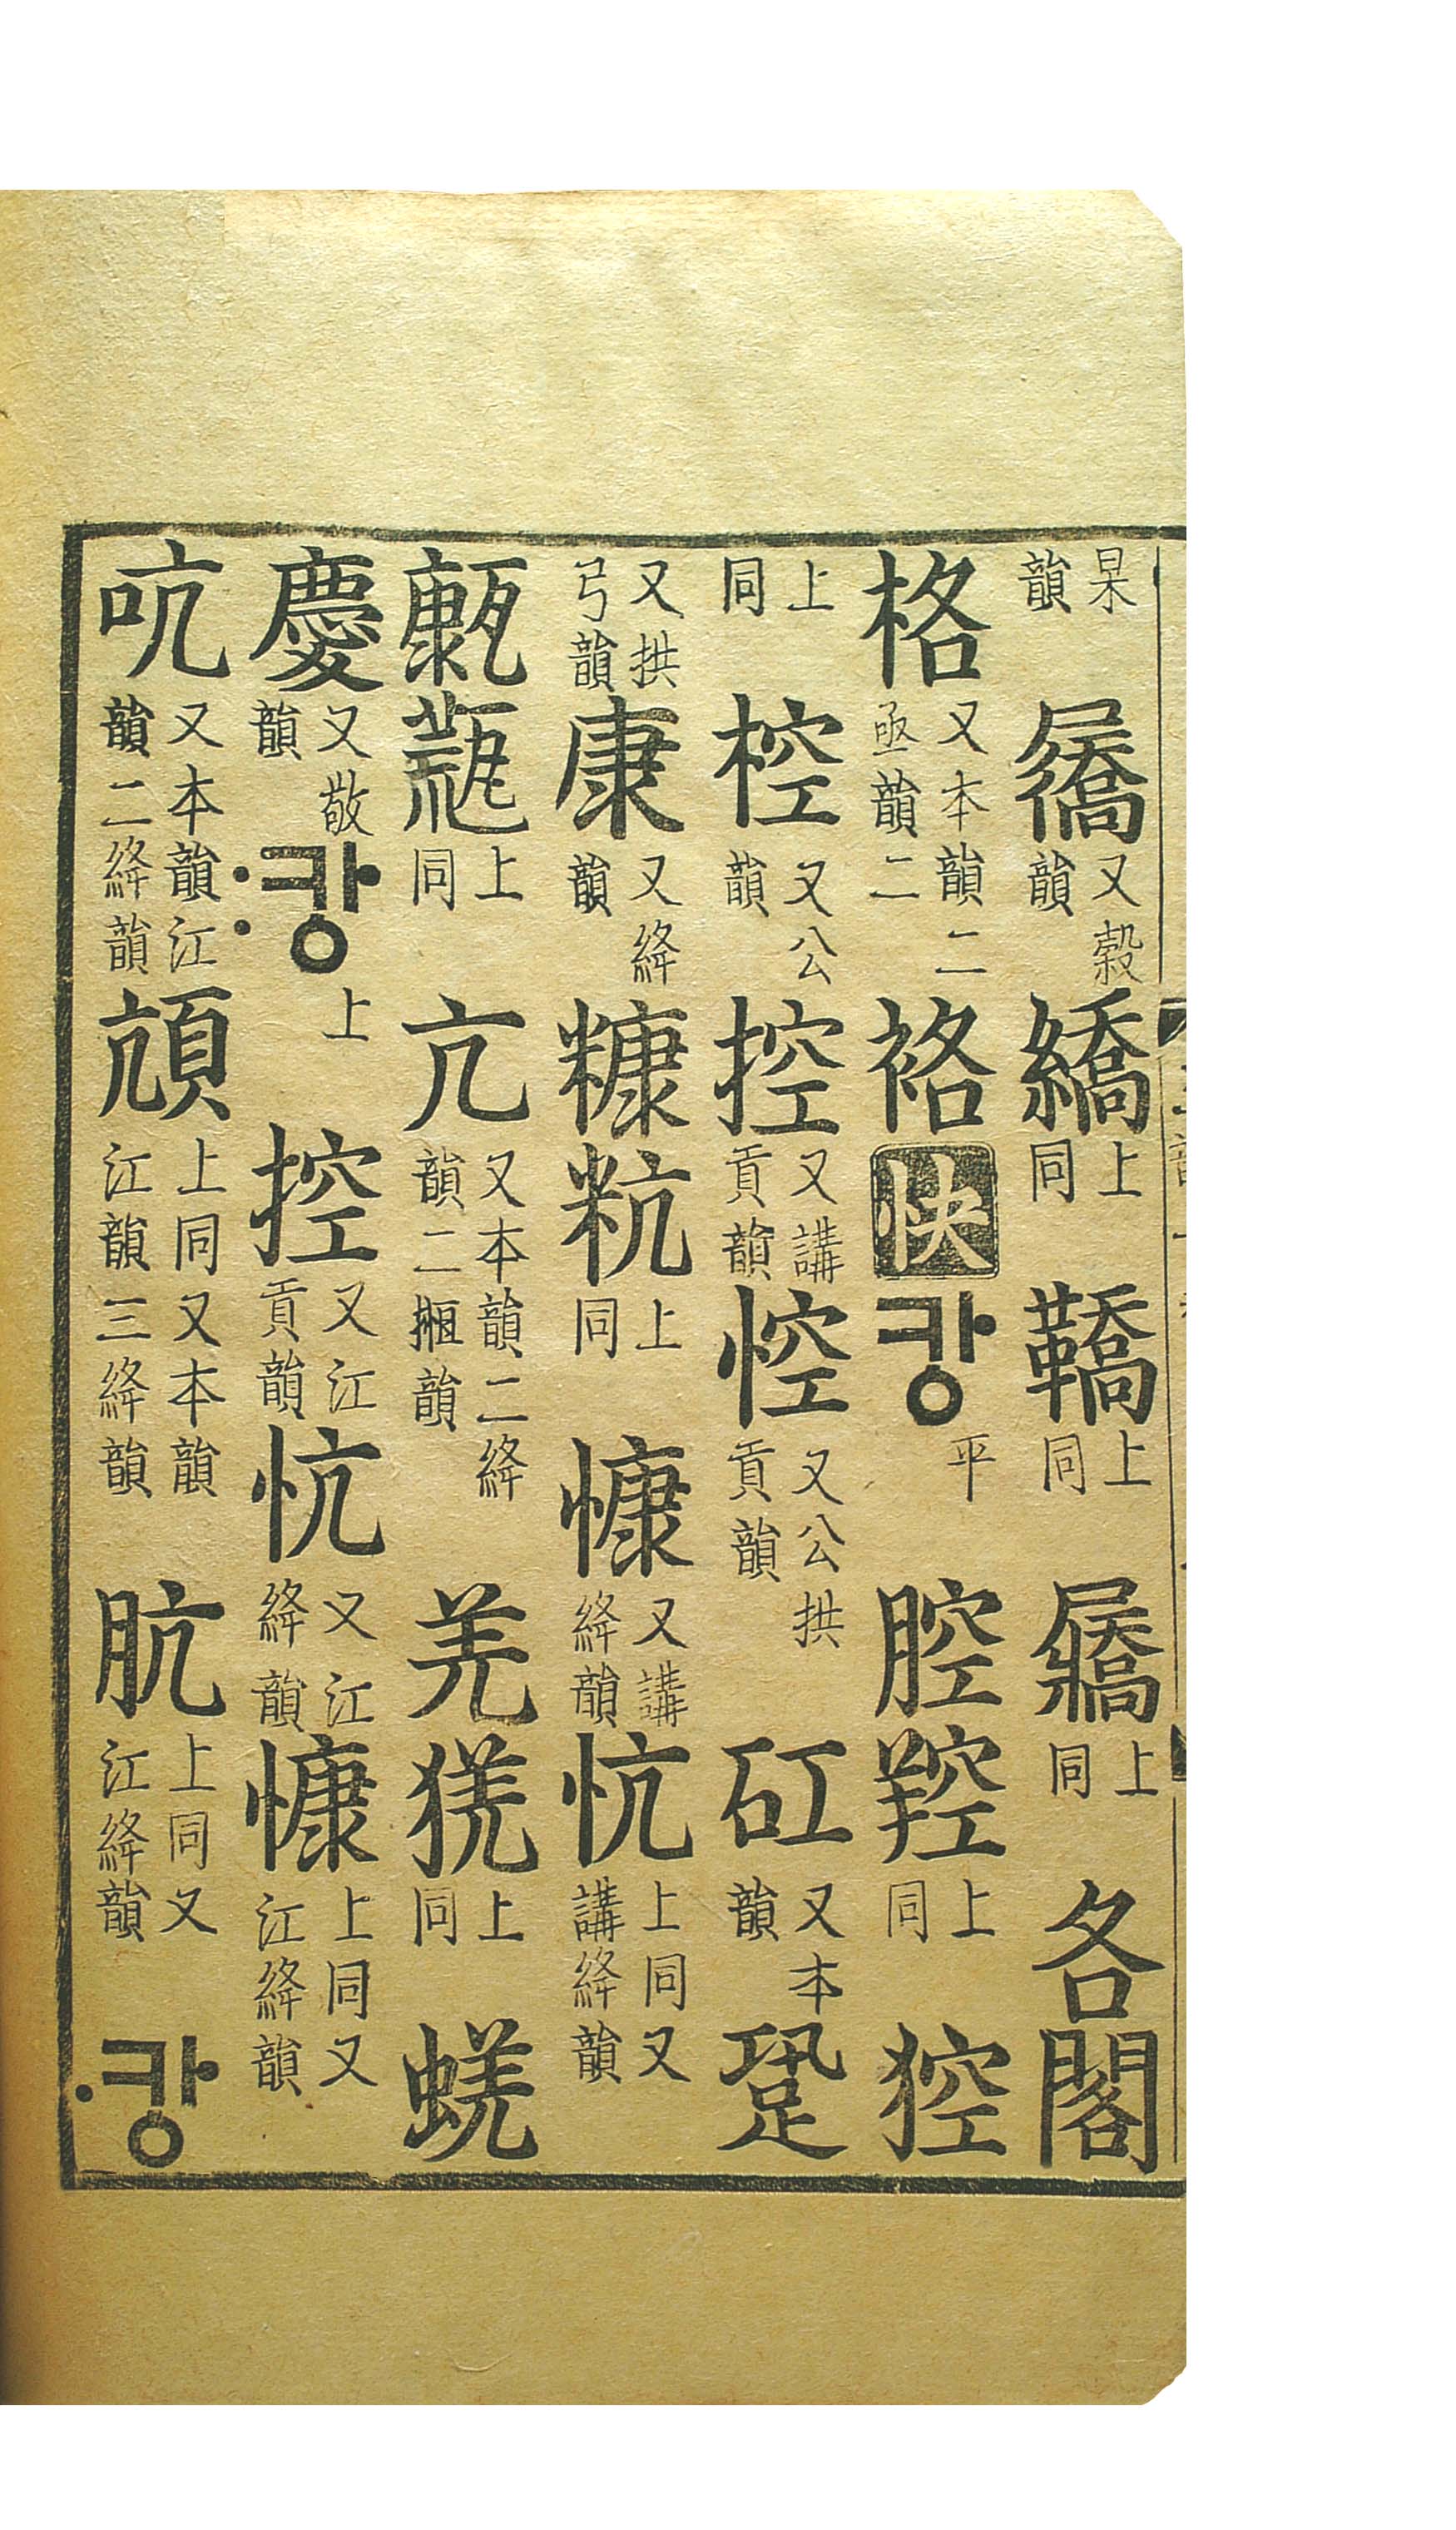 杲韻 屩 又穀韻 繑 上同 鞽 上同 上同 各 閣
格 又本韻二亟韻二 袼 快 캉 平 腔 羫 上同 崆
上同 椌 又公韻 控 又講貢韻 悾 又公拱貢韻 矼 又本韻 跫
又拱弓韻 康 又絳韻 糠 粇 上同 慷 又講絳韻 忼 上同又講絳韻
上同 亢 又本韻二絳韻二韻 羌 猐 上同 蜣
慶 又敬韻 :캉 上 控 又江貢韻 忼 又江絳韻 慷 上同又江絳韻
吭 又本韻江韻二絳韻 頏 上同又本韻江韻三絳韻 肮 上同又江絳韻 ·캉